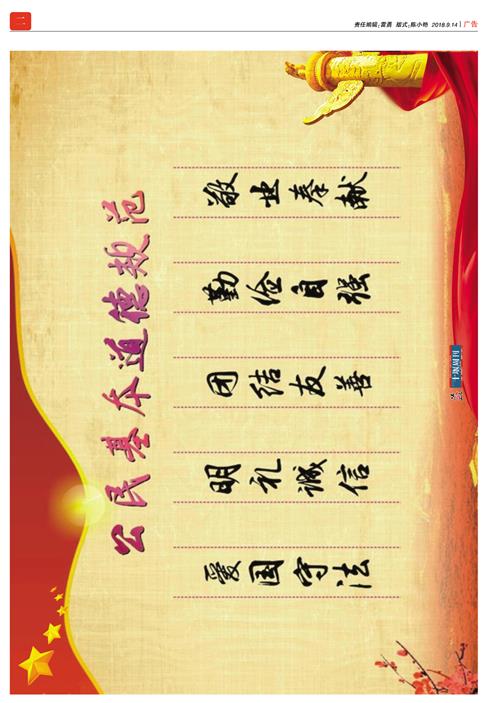 二
责任编辑:雷勇 版式:陈小艳 2018.9.14 | 广告
公民基本道德规范
爱国守法
明礼诚信
团结友善
勤俭自强
敬业奉献
十堰周刊